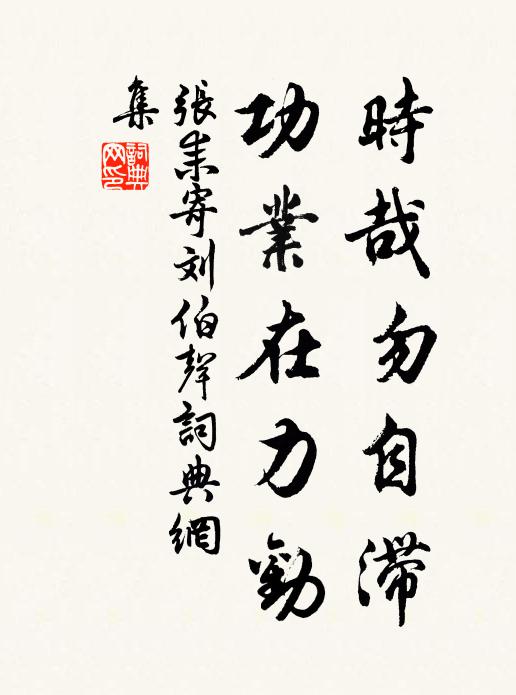 時哉勿自滯
功業在力勤
張耒寄刘伯聲詞典網
集
詞典
网印